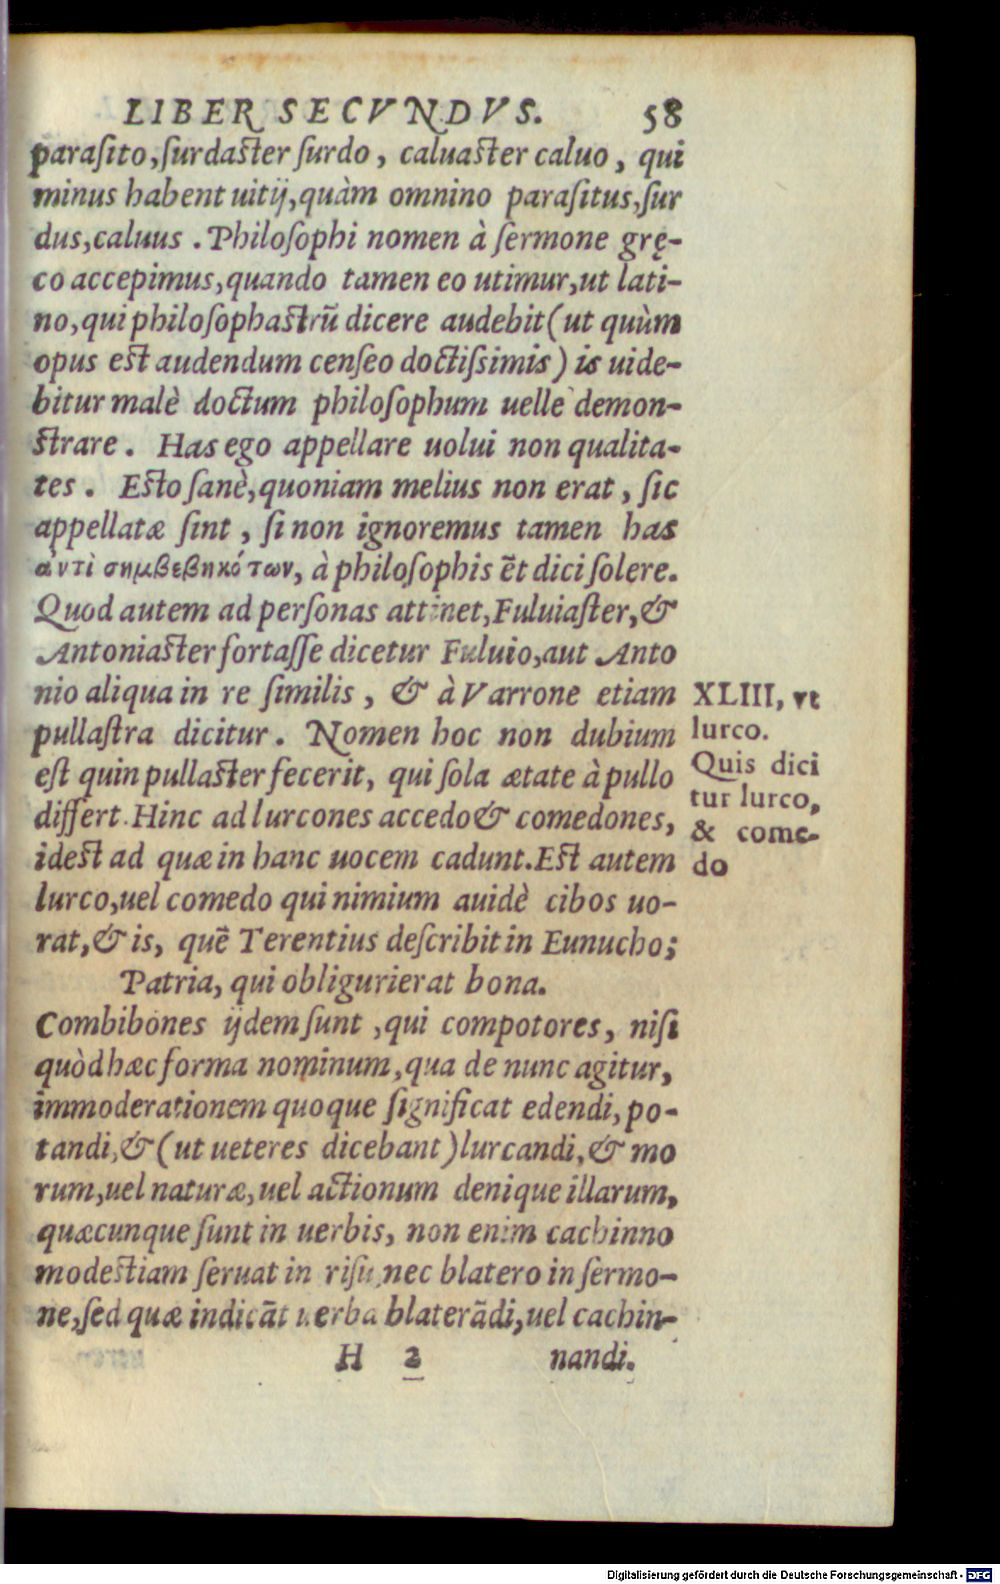 LIBER SECVNDVS. 58
paraſito, ſurdaſter ſurdo, caluaſter caluo, qui
minus habent uitij, quàm omnino paraſitus, ſur
dus, caluus. Philoſophi nomen à ſermone grę-
co accepimus, quando tamen eo utimur, ut lati-
no, qui philoſophaſtrũ dicere audebit (ut quùm
opus eſt audendum cenſeo doctiſsimis) is uide-
bitur malè doctum philoſophum uelle demon-
ſtrare. Has ego appellare uolui non qualita-
tes. Eſto ſanè, quoniam melius non erat, ſic
appellatæ ſint, ſi non ignoremus tamen has
ἀντὶ σημβεβηκότων, à philoſophis ẽt dici ſolere.
Quod autem ad perſonas attinet, Fuluiaſter, &
Antoniaſter fortaſſe dicetur Fuluio, aut Anto
nio aliqua in re ſimilis, & à Varrone etiam
pullaſtra dicitur. Nomen hoc non dubium
eſt quin pullaſter fecerit, qui ſola ætate à pullo
differt. Hinc ad lurcones accedo & comedones,
ideſt ad quæ in hanc uocem cadunt. Eſt autem
lurco, uel comedo qui nimium auidè cibos uo-
rat, & is, quẽ Terentius deſcribit in Eunucho;
Patria, qui obligurierat bona.
Combibones ijdem ſunt, qui compotores, niſi
quòd hæc forma nominum, qua de nunc agitur,
immoderationem quoque ſignificat edendi, po-
tandi, & (ut ueteres dicebant) lurcandi, & mo
rum, uel naturæ, uel actionum denique illarum,
quæcunque ſunt in uerbis, non enim cachinno
modeſtiam ſeruat in riſu, nec blatero in ſermo-
ne, ſed quæ indicãt uerba blaterãdi, uel cachin-
H 2 nandi.
XLIII, vt
lurco.
Quis dici
tur lurco,
& come-
do
Digitalisierung gefördert durch die Deutsche Forschungsgemeinschaft - DFG